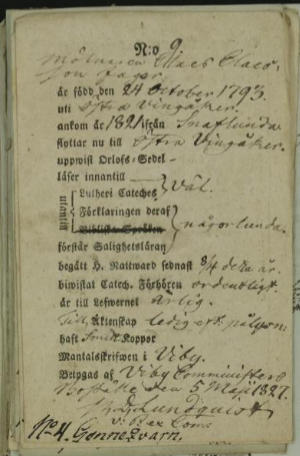 N:o 9
Mölnaren Claes Claes-
son Fager
är född den 24 October 1793.
uti Östra Vingåker.
ankom år 1821 ifrån Snaflunda
flyttar nu till Östra Vingåker.
uppwist Orlofs-Sedel -
läser innantill
utantill
Lutheri Cateches } Väl.
Förklaringen deraf
Bibliska Språken } någorlunda.
förstår Salighetsläran
begått H. Nattward sednast 8/4 detta år.
biwistat Catech. Förhören ordentligt.
är till Lefwernet ärlig.
till Äktenskap ledig
haft Koppor
Mantalskrifwen i Viby.
Betygas af Viby Comministers
Boställe den 5 Maji 1827.
Lundquist
N:o 4. Gonneqvarn.